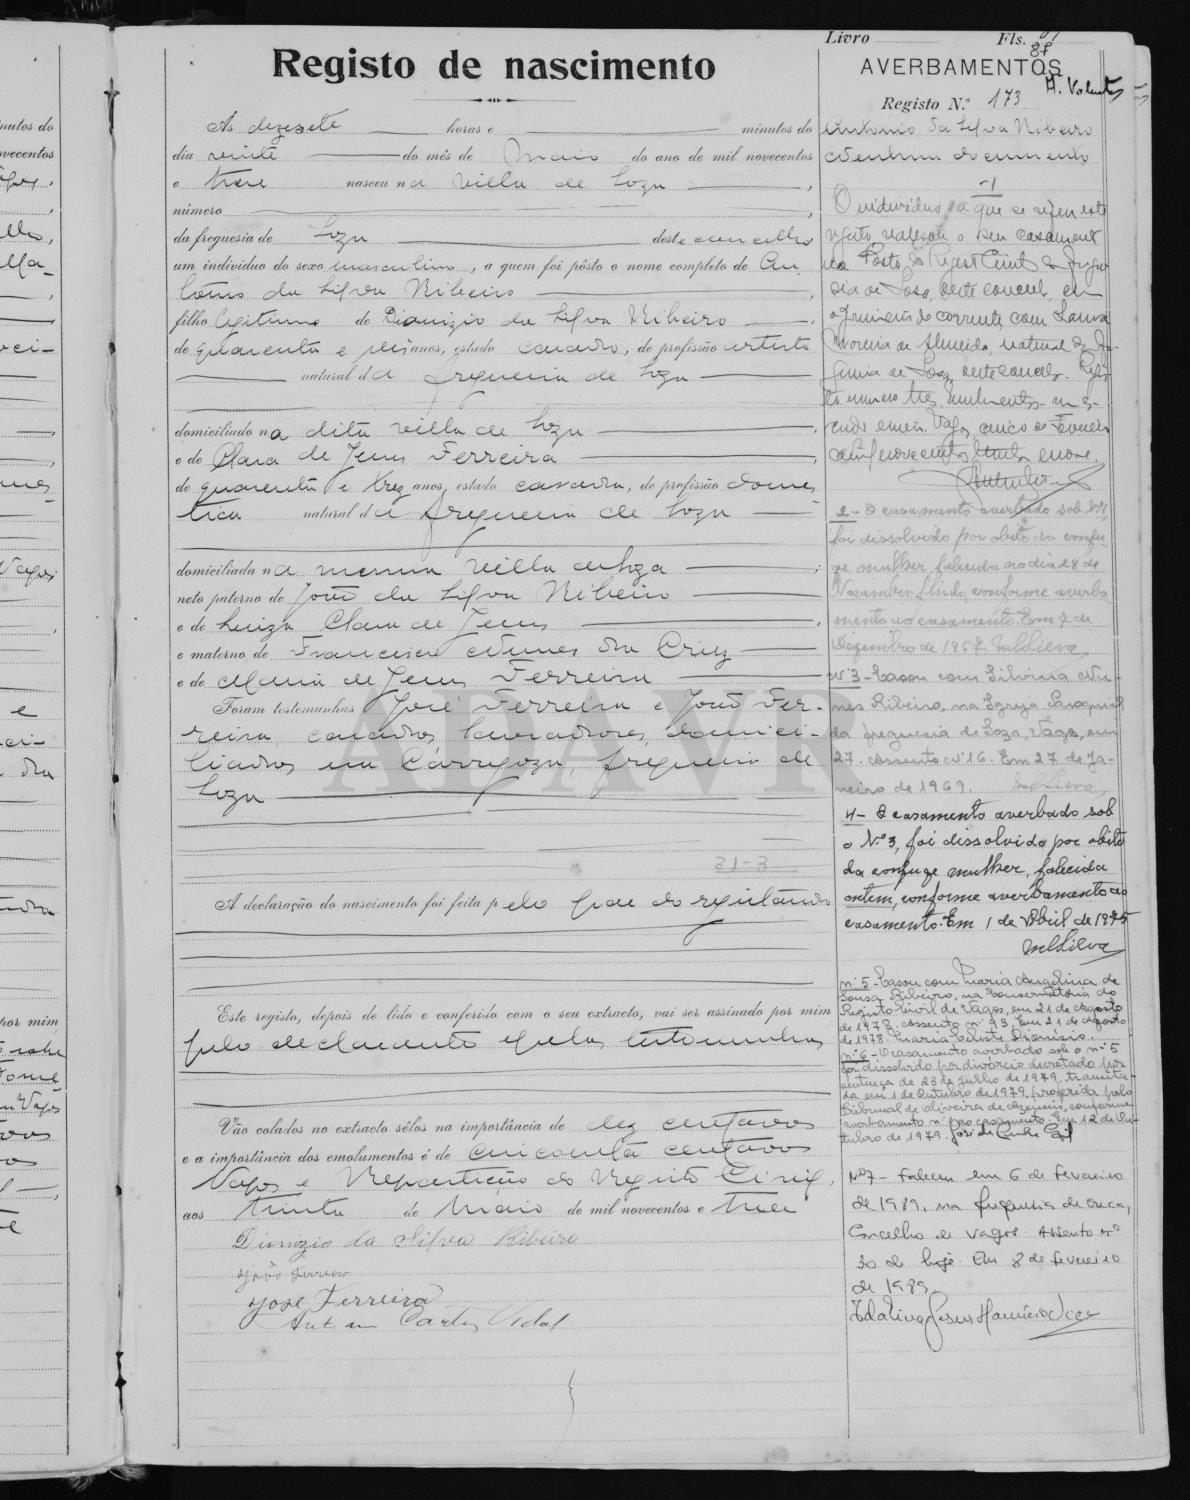 Livro Fls. 87
Registo de nascimento
As dezesete horas e minutos do
dia vinte do mês de Maio do ano de mil novecentos
e treze nasceu na villa de Soza,
número
da freguesia de Soza deste concelho
um individuo do sexo masculino, a quem foi pôsto o nome completo de An-
tonio da Silva Ribeiro
filho legitimo de Dionizio da Silva Ribeiro
de quarenta e seis anos, estado casado, de profissão artista
natural da freguezia de Soza
domiciliado na dita villa de Soza
e de Clara de Jesus Ferreira
de quarenta e trez anos, estado casada, de profissão domes-
tica natural da freguezia de Soza
domiciliada na mesma villa de Soza
neto paterno de João da Silva Ribeiro
e de Luiza Clara de Jesus
e materno de Francisco Nunes da Cruz
e de Maria de Jesus Ferreira
Foram testemunhas José Ferreira e João Fer-
reira, casados, lavradores, domici-
liados em Carregoza, freguezia de
Soza
31-3
A declaração do nascimento foi feita pelo pae do registando
Este registo, depois de lido e conferido com o seu extracto, vai ser assinado por mim
pelo declarante e pelas testemunhas
Vão colados no extracto sêlos na importância de dez centavos
e a importância dos emolumentos é de cincoenta centavos
Vagos e Repartição do Registo Civil,
aos trinta de Maio de mil novecentos e treze
Dionizio da Silva Ribeiro
João Ferreira
Jose Ferreira
Carlos Vidal
AVERBAMENTOS
Registo N.º 173
Antonio da Silva Ribeiro
Nenhum documento
1
O individuo a que se refere este
registo realisou o seu casamento
no Posto do Registo Civil da fregue-
sia de Sosa, deste concelho, em
de corrente, com Laura
Moreira de Almeida, natural da fre-
guesia de Sosa, deste concelho. Regis-
to numero tres,
Vagos, cinco de Fevereiro
de mil novecentos trinta e nove.
2- O casamento averbado sob Nº1,
foi dissolvido por obito da conju-
ge mulher, falecida no dia 28 de
Novembro findo, conforme averba-
mento ao casamento. Em 7 de
Dezembro de 1967. MLSilva
Nº3- Casou com Silvina Nu-
nes Ribeiro, na Igreja Paroquial
da freguesia de Soza, Vagos, em
27. Assento nº 16. Em 27 de Ja-
neiro de 1969. MLSilva
4- O casamento averbado sob
o Nº3, foi dissolvido por obito
da conjuge mulher, falecida
ontem, conforme averbamento ao
casamento. Em 1 de Abril de 1975
MLSilva
nº5- Casou com Maria Angelina de
Sousa Ribeiro, na Conservatória do
Registo Civil de Vagos, em 21 de Agosto
de 1978. Assento nº 93. Em 21 de Agosto
de 1978. Maria Celeste Dionísio
nº6- O casamento averbado sob o nº5
foi dissolvido por divórcio decretado por
sentença de 23 de Julho de 1979, transita-
da em 1 de Outubro de 1979, proferida pelo
Tribunal de Oliveira de Azemeis, conforme
averbamento nº ao casamento. Em 12 de Ou-
tubro de 1979. José da Cunha Gil
Nº7- Faleceu em 6 de Fevereiro
de 1989, na freguesia de Ouca,
Concelho de Vagos. Assento nº
30 de hoje. Em 8 de Fevereiro
de 1989
ADAVR